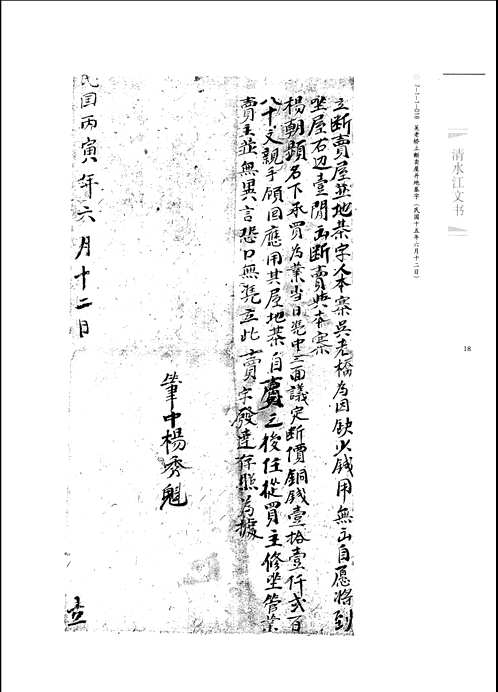 清水江文书
1-1-1-030 吴老桥立断卖屋并地基字（民国十五年六月十二日）
18
立断賣屋並地基字人本寨吳老橋為因缺少錢用無出自愿將到
坐屋右边壹間出断賣與本寨
楊朝顯名下承買為業當日凭中三面議定断價銅錢壹拾壹仟弍百
八十文親手領回應用其屋地基自賣之後任從買主修坐管業
賣主並無異言恐口無凭立此賣字發達存照為據
筆中楊秀魁
民囯丙寅年六月十二日 立